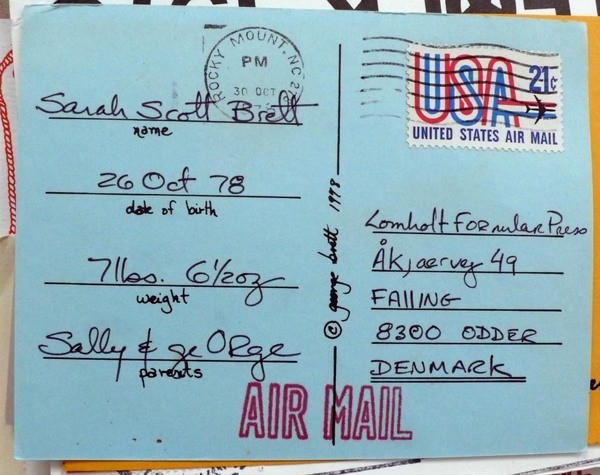 ROCKY MOUNT, NC
PM
30 OCT
Sarah Scott Brett
name
26 Oct 78
date of birth
7 lbs. 6½oz
weight
Sally & geORge
parents
© george brett 1978
USA 21¢
UNITED STATES AIR MAIL
Lomholt FoRmular Press
Åkjaervej 49
FAlliNG
8300 ODDER
DENMARK
AIR MAIL